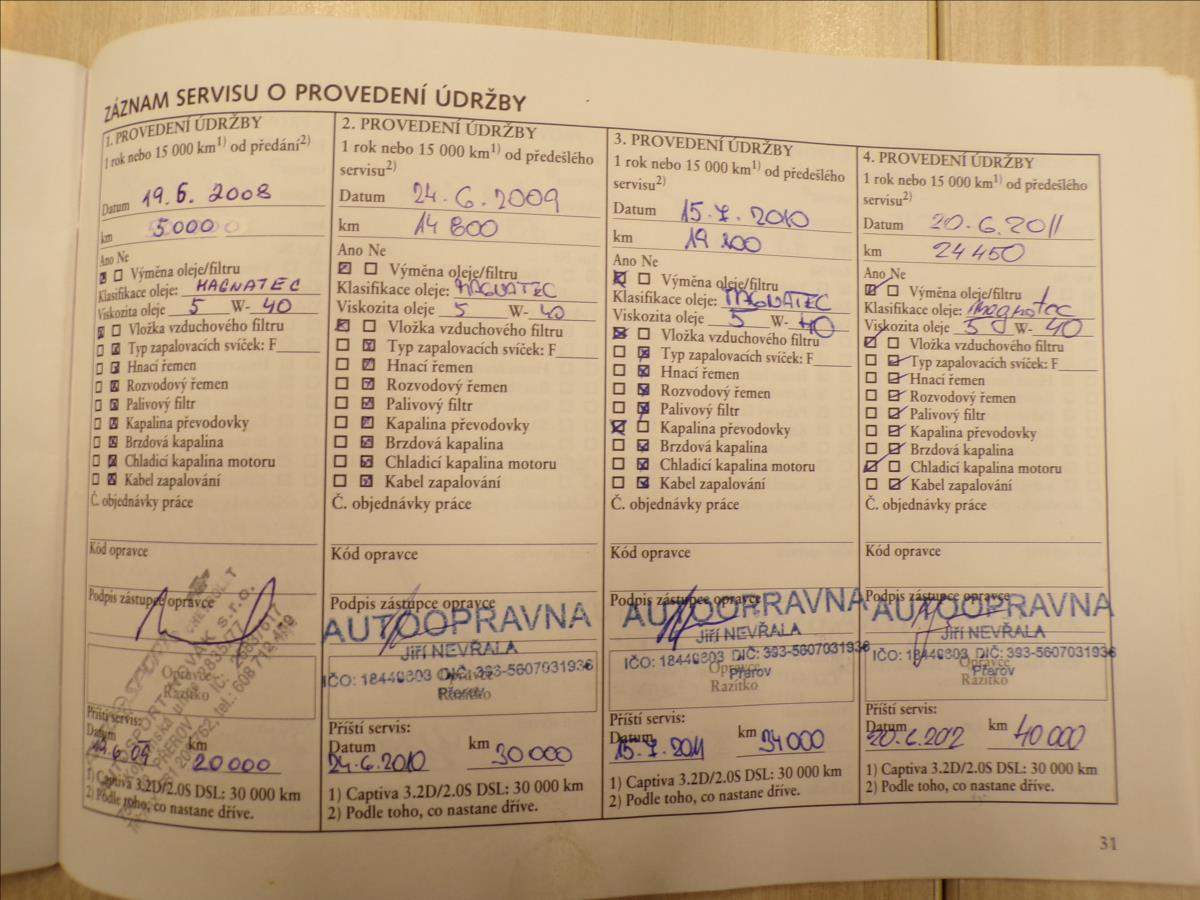 ZÁZNAM SERVISU O PROVEDENÍ ÚDRŽBY
1. PROVEDENÍ ÚDRŽBY
1 rok nebo 15 000 km1) od předání2)
Datum 19.6. 2008
km 5000
Ano Ne
Výměna oleje/filtru
Klasifikace oleje: MAGNATEC
Viskozita oleje 5 W- 40
Vložka vzduchového filtru
Typ zapalovacích svíček: F
Hnací řemen
Rozvodový řemen
Palivový filtr
Kapalina převodovky
Brzdová kapalina
Chladicí kapalina motoru
Kabel zapalování
Č. objednávky práce
Kód opravce
Podpis zástupce opravce
Opravce
Razítko
Příští servis:
Datum km
19.6.09 20000
1) Captiva 3.2D/2.0S DSL: 30 000 km
2) Podle toho, co nastane dříve.
2. PROVEDENÍ ÚDRŽBY
1 rok nebo 15 000 km1) od předešlého
servisu2)
Datum 24.6.2009
km 14 800
Ano Ne
Výměna oleje/filtru
Klasifikace oleje: MAGNATEC
Viskozita oleje 5 W- 40
Vložka vzduchového filtru
Typ zapalovacích svíček: F
Hnací řemen
Rozvodový řemen
Palivový filtr
Kapalina převodovky
Brzdová kapalina
Chladicí kapalina motoru
Kabel zapalování
Č. objednávky práce
Kód opravce
Podpis zástupce opravce
AUTOOPRAVNA
Jiří NEVŘALA
IČO: 18449803 DIČ: 393-5607031936
Opravce
Přerov
Razítko
Příští servis:
Datum km 30 000
24.6.2010
1) Captiva 3.2D/2.0S DSL: 30 000 km
2) Podle toho, co nastane dříve.
3. PROVEDENÍ ÚDRŽBY
1 rok nebo 15 000 km1) od předešlého
servisu2)
Datum 15.7.2010
km 19 200
Ano Ne
Výměna oleje/filtru
Klasifikace oleje: MAGNATEC
Viskozita oleje 5 W- 40
Vložka vzduchového filtru
Typ zapalovacích svíček: F
Hnací řemen
Rozvodový řemen
Palivový filtr
Kapalina převodovky
Brzdová kapalina
Chladicí kapalina motoru
Kabel zapalování
Č. objednávky práce
Kód opravce
Podpis zástupce opravce
AUTOOPRAVNA
Jiří NEVŘALA
IČO: 18449803 DIČ: 393-5607031936
Opravce
Přerov
Razítko
Příští servis:
Datum km 34 000
15.7.2011
1) Captiva 3.2D/2.0S DSL: 30 000 km
2) Podle toho, co nastane dříve.
4. PROVEDENÍ ÚDRŽBY
1 rok nebo 15 000 km1) od předešlého
servisu2)
Datum 20.6.2011
km 24 450
Ano Ne
Výměna oleje/filtru
Klasifikace oleje: magnatec
Viskozita oleje 5 W- 40
Vložka vzduchového filtru
Typ zapalovacích svíček: F
Hnací řemen
Rozvodový řemen
Palivový filtr
Kapalina převodovky
Brzdová kapalina
Chladicí kapalina motoru
Kabel zapalování
Č. objednávky práce
Kód opravce
Podpis zástupce opravce
AUTOOPRAVNA
Jiří NEVŘALA
IČO: 18449803 DIČ: 393-5607031936
Opravce
Přerov
Razítko
Příští servis:
Datum km 40 000
20.6.2012
1) Captiva 3.2D/2.0S DSL: 30 000 km
2) Podle toho, co nastane dříve.
31